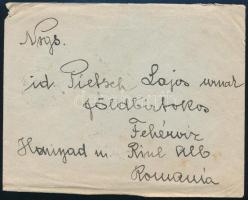 Ngs.
id. Pietsch Lajos urnak
földbirtokos
Fehérviz
Hunyad m. Riul Alb
Romania